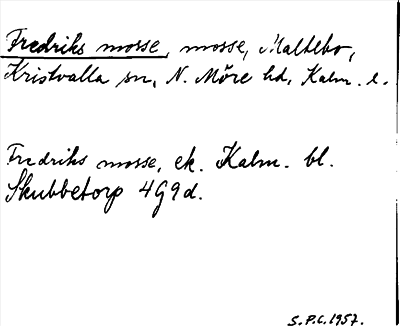 Fredriks mosse, mosse, Maltebo,
Kristvalla sn, N. Möre hd, Kalm. l.
Fredriks mosse, ek. Kalm. bl.
Skubbetorp 4G9d.
S.P.C. 1957.